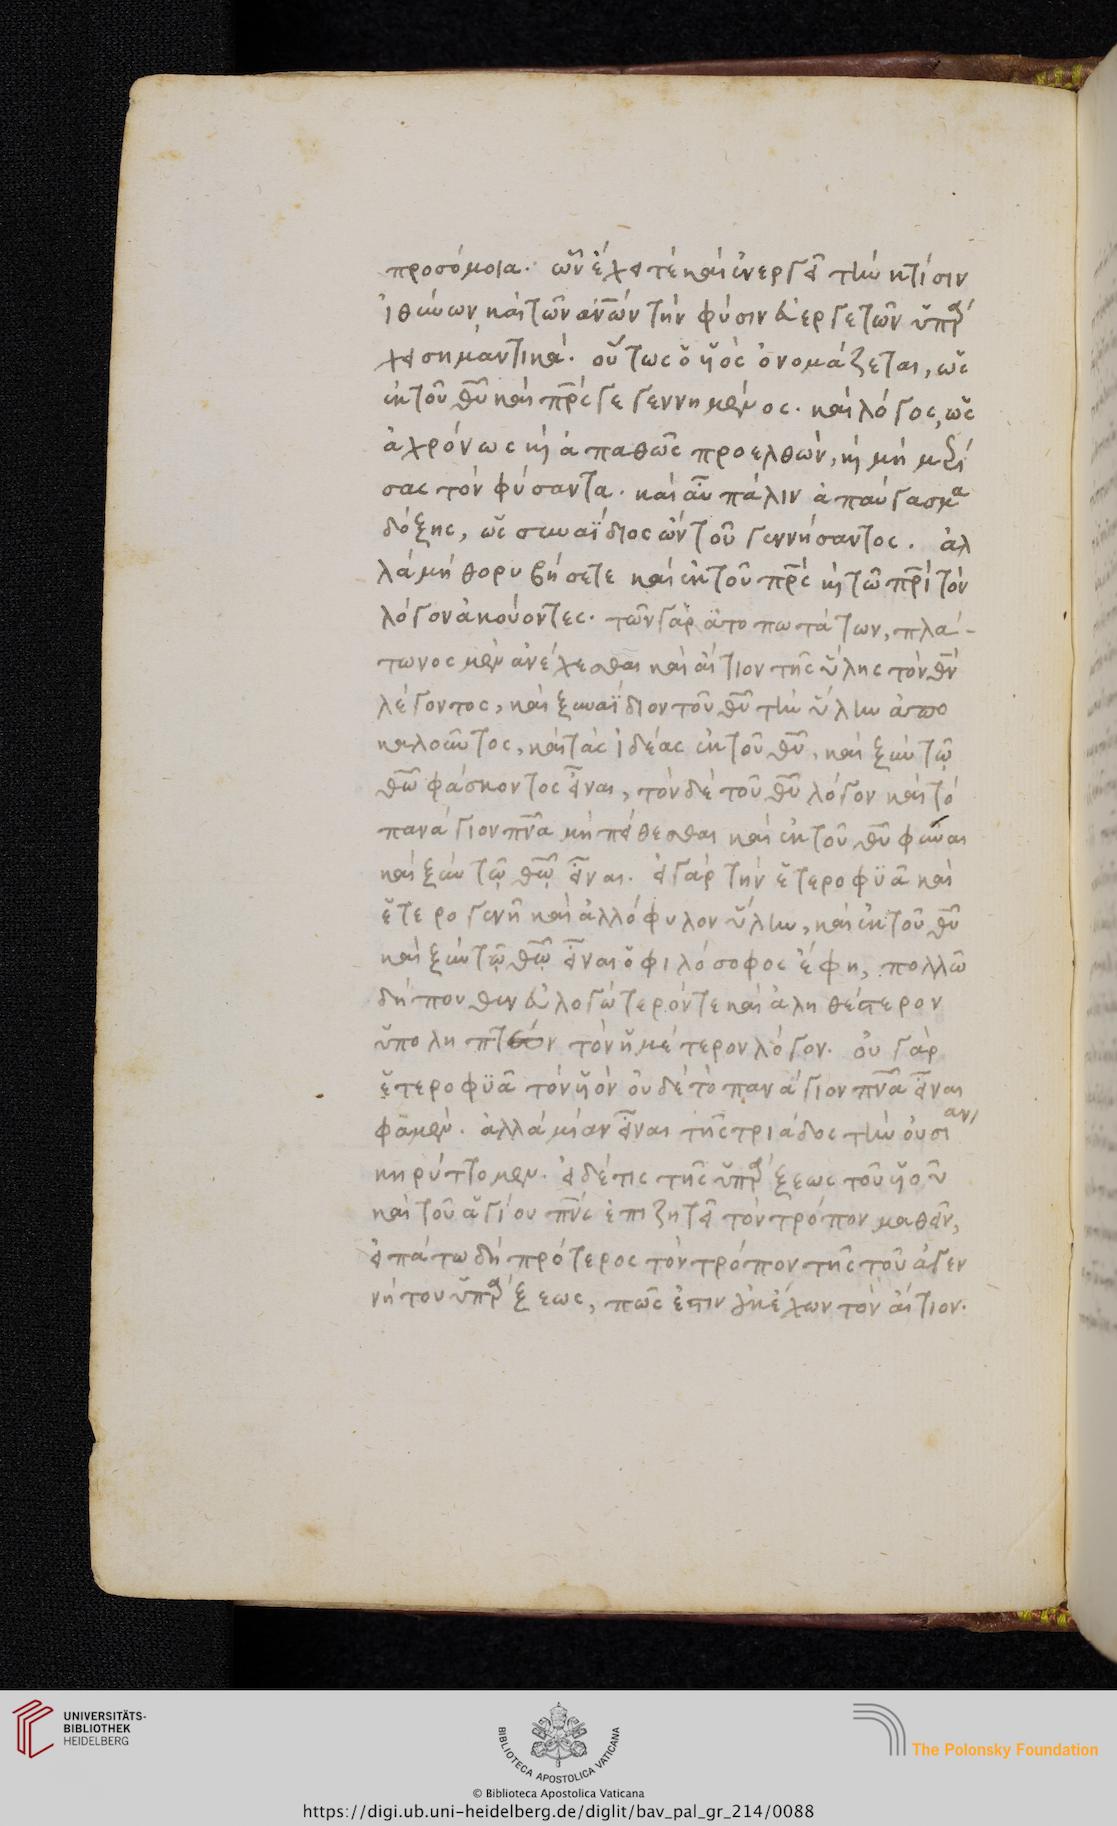 προσόμοια. ὧν ἔχει τὲ καὶ ἐνεργεῖ τὴν κτίσιν
ἰθύνων, καὶ τῶν ἀν̅ω̅ν τὴν φύσιν εὐεργετῶν ὑπάρ
χει σημαντικά. οὕτως ὁ υἱὸς ὀνομάζεται, ὡς
ἐκ τοῦ θ̅υ̅ καὶ πρ̅ς γεγεννημένος. καὶ λόγος, ὡς
ἀχρόνως κ̀ ἀπαθῶς προελθὼν, κ̀ μὴ μερί
σας τὸν φύσαντα. καὶ αὖ πάλιν ἀπαύγασμα
δόξης, ὡς συναΐδιος ὢν τοῦ γεννήσαντος. ἀλ
λὰ μὴ θορυβήσετε καὶ ἐκ τοῦ πρ̅ς κ̀ τῶ πρ̅ι τὸν
λόγον ἀκούοντες. τῶν γὰρ ἀτοπωτάτων, πλά-
τωνος μὲν ἀνέχεσθαι καὶ αἴτιον τῆς ὕλης τὸν θ̅ν̅
λέγοντος, καὶ ξυναΐδιον τοῦ θ̅υ̅ τὴν ὕλην ἀπο
καλοῦντος, καὶ τὰς ἰδέας ἐκ τοῦ θ̅υ̅, καὶ ξὺν τῷ
θ̅ω̅ φάσκοντος εἶναι, τὸν δὲ τοῦ θ̅υ̅ λόγον καὶ τὸ
πανάγιον πν̅α μὴ πείθεσθαι καὶ ἐκ τοῦ θ̅υ̅ φῦναι
καὶ ξὺν τῷ θ̅ῳ̅ εἶναι. εἰ γὰρ τὴν ἑτεροφϋᾶ καὶ
ἑτερογενῆ καὶ ἀλλόφυλον ὕλην, καὶ ἐκ τοῦ θ̅υ̅
καὶ ξὺν τῷ θ̅ῳ̅ εἶναι ὁ φιλόσοφος ἔφη, πολλῶ
δήπουθεν εὐλογώτερόν τε καὶ ἀληθέστερον
ὑποληπτέον τὸν ἡμέτερον λόγον. οὐ γὰρ
ἑτεροφϋᾶ τὸν υἱὸν οὐδὲ τὸ πανάγιον πν̅α εἶναι
φαμὲν. ἀλλὰ μίαν εἶναι τῆς τριάδος τὴν οὐσίαν
κηρύττομεν. εἰ δέ τις τῆς ὑπάρξεως τοῦ υἱοῦ
καὶ τοῦ ἁγίου πν̅ς ἐπιζητεῖ τὸν τρόπον μαθεῖν,
εἰπάτω δὴ πρότερος τὸν τρόπον τῆς τοῦ ἀγεν
νήτου ὑπάρξεως, πῶς ἐστιν οὐκ ἔχων τὸν αἴτιον.
UNIVERSITÄTS-
BIBLIOTHEK
HEIDELBERG
BIBLIOTECA APOSTOLICA VATICANA
The Polonsky Foundation
© Biblioteca Apostolica Vaticana
https://digi.ub.uni-heidelberg.de/diglit/bav_pal_gr_214/0088